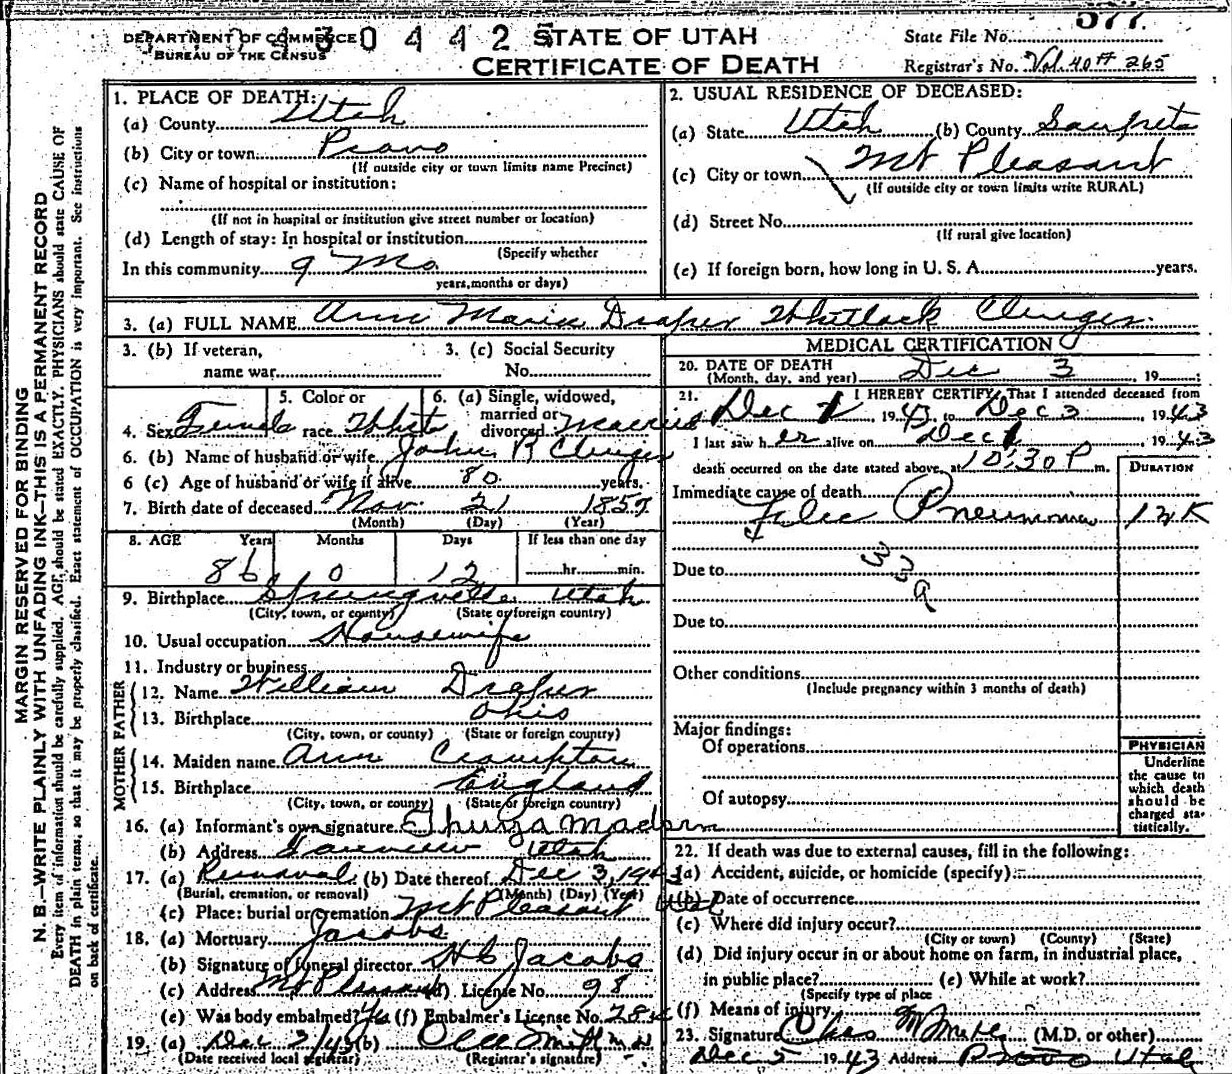 577
DEPARTMENT OF COMMERCE 430442 STATE OF UTAH State File No.
BUREAU OF THE CENSUS CERTIFICATE OF DEATH Registrar's No. Vol. 40 # 265
MARGIN RESERVED FOR BINDING
N. B.—WRITE PLAINLY WITH UNFADING INK—THIS IS A PERMANENT RECORD
Every item of information should be carefully supplied. AGE should be stated EXACTLY. PHYSICIANS should state CAUSE OF
DEATH in plain terms, so that it may be properly classified. Exact statement of OCCUPATION is very important. See instructions
on back of certificate.
1. PLACE OF DEATH:
(a) County Utah
(b) City or town Provo
(If outside city or town limits name Precinct)
(c) Name of hospital or institution:
(If not in hospital or institution give street number or location)
(d) Length of stay: In hospital or institution
(Specify whether
In this community 9 Mo.
years, months or days)
2. USUAL RESIDENCE OF DECEASED:
(a) State Utah (b) County Sanpete
(c) City or town Mt Pleasant
(If outside city or town limits write RURAL)
(d) Street No.
(If rural give location)
(e) If foreign born, how long in U. S. A. years.
3. (a) FULL NAME Ann Maria Draper Whitlock Clinger
3. (b) If veteran, 3. (c) Social Security
name war No.
5. Color or 6. (a) Single, widowed,
married or
4. Sex Female race White divorced Married
6. (b) Name of husband or wife John R Clinger
6 (c) Age of husband or wife if alive 80 years.
7. Birth date of deceased Nov. 21 1857
(Month) (Day) (Year)
8. AGE Years Months Days If less than one day
86 0 12 hr. min.
9. Birthplace Springville Utah
(City, town, or county) (State or foreign country)
10. Usual occupation Housewife
11. Industry or business
FATHER
12. Name William Draper
13. Birthplace Ohio
(City, town, or county) (State or foreign country)
MOTHER
14. Maiden name Ann Crompton
15. Birthplace England
(City, town, or county) (State or foreign country)
16. (a) Informant's own signature Thurza Madsen
(b) Address Utah
17. (a) Removal (b) Date thereof Dec 3, 1943
(Burial, cremation, or removal) (Month) (Day) (Year)
(c) Place: burial or cremation Mt Pleasant Utah
18. (a) Mortuary Jacobs
(b) Signature of funeral director H C Jacobs
(c) Address Mt Pleasant (d) License No. 98
(e) Was body embalmed? Yes (f) Embalmer's License No.
19. (a) Dec 3/43 (b)
(Date received local registrar) (Registrar's signature)
MEDICAL CERTIFICATION
20. DATE OF DEATH
(Month, day, and year) Dec 3, 19
21. I HEREBY CERTIFY, That I attended deceased from
Dec 1 1943 to Dec 3, 1943
I last saw her alive on Dec 1, 1943
death occurred on the date stated above, at 10:30 P m.
DURATION
Immediate cause of death
Pneumonia 1 wk
Due to 33a
Due to
Other conditions
(Include pregnancy within 3 months of death)
Major findings:
Of operations
Of autopsy
PHYSICIAN
Underline
the cause to
which death
should be
charged sta-
tistically.
22. If death was due to external causes, fill in the following:
(a) Accident, suicide, or homicide (specify)
(b) Date of occurrence
(c) Where did injury occur?
(City or town) (County) (State)
(d) Did injury occur in or about home on farm, in industrial place,
in public place? (e) While at work?
(Specify type of place
(f) Means of injury
23. Signature (M.D. or other)
Dec 5 1943 Address Provo Utah